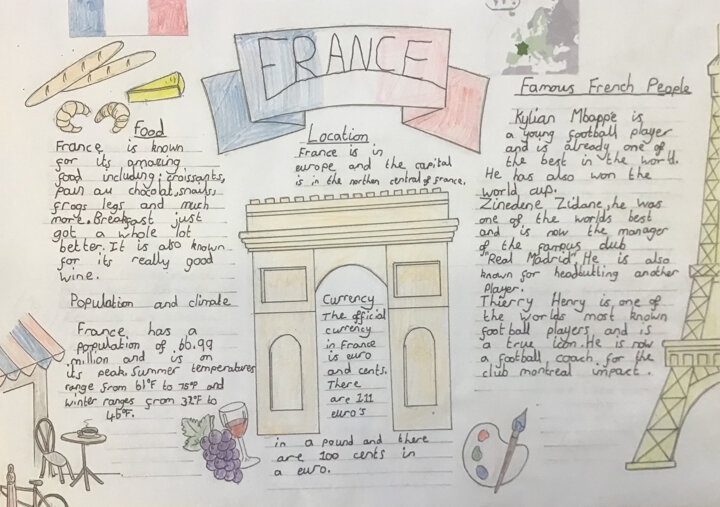 FRANCE
Food
France is known
for its amazing
food including; croissants,
pain au chocolat, snails,
frogs legs and much
more. Breakfast just
got a whole lot
better. It is also known
for its really good
wine.
Population and climate
France has a
population of 66.99
million and is on
its peak. Summer temperatures
range from 61°F to 75°F and
winter ranges from 32°F to
45°F.
Location
France is in
europe and the capital
is in the northen central of france.
Currency
The official
currency
in France
is euro
and cents.
There
are 1.11
euro's
in a pound and there
are 100 cents in
a euro.
Famous French People
Kylian Mbappe is
a young football player
and is already one of
the best in the world.
He has also won the
world cup.
Zinedene Zidane, he was
one of the worlds best
and is now the manager
of the famous club
"Real Madrid". He is also
known for headbutting another
player.
Thierry Henry is one of
the worlds most known
football players and is
a true icon. He is now
a football coach for the
club montreal impact.